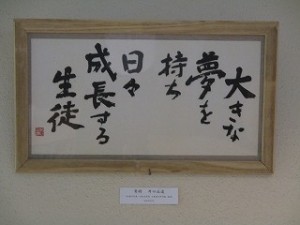 大きな
夢を
持ち
日々
成長する
生徒